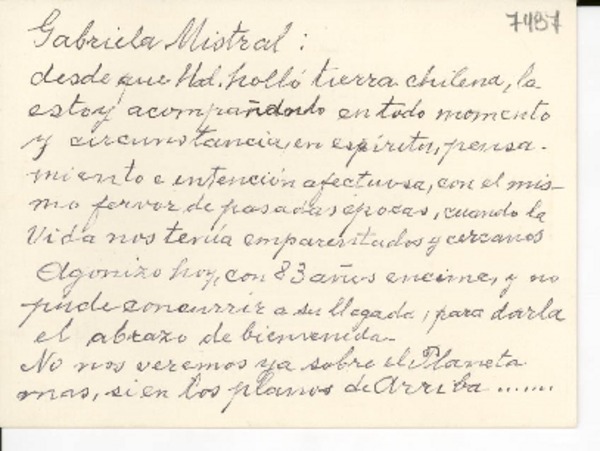 7497
Gabriela Mistral:
desde que Ud. holló tierra chilena, la
estoy acompañando en todo momento
y circunstancia, en espíritu, pensa-
miento e intención afectuosa, con el mis-
mo fervor de pasadas épocas, cuando la
Vida nos tenía emparentados y cercanos
Agonizo hoy, con 83 años encima, y no
pude concurrir a su llegada, para darla
el abrazo de bienvenida.
No nos veremos ya sobre el Planeta
mas, si en los planos de Arriba .......